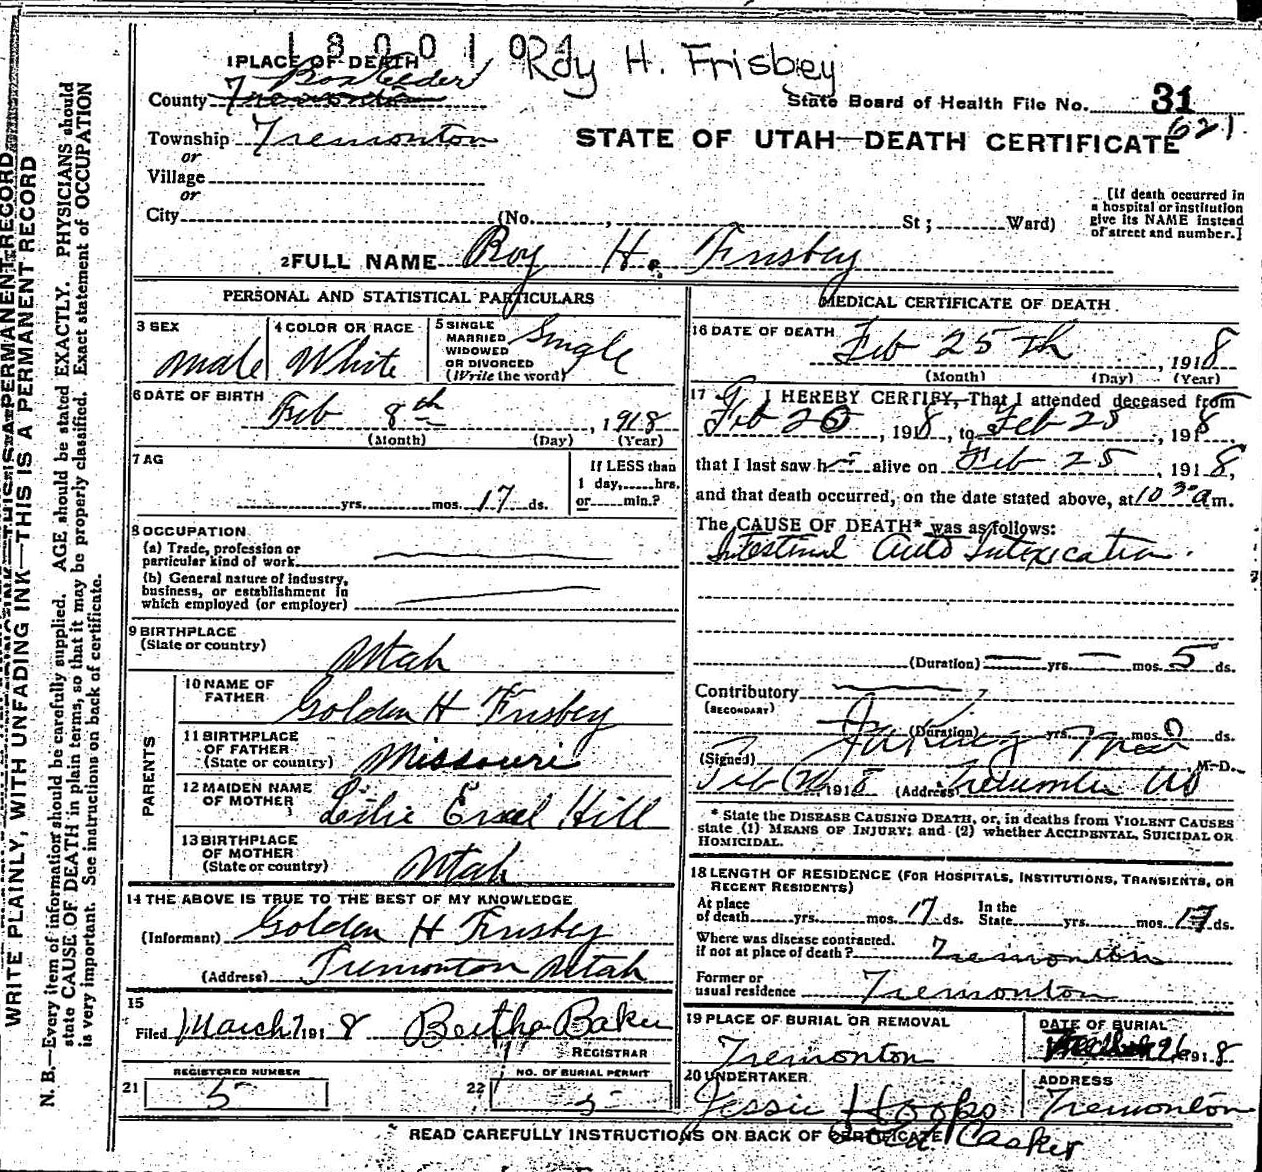 1800104
Roy H. Frisbey
1 PLACE OF DEATH
Boxelder
County Tremonton
State Board of Health File No. 31
621
Township Tremonton
STATE OF UTAH—DEATH CERTIFICATE
or
Village
or
City (No. , St ; Ward)
[If death occurred in
a hospital or institution
give its NAME instead
of street and number.]
2 FULL NAME Roy H. Frisbey
PERSONAL AND STATISTICAL PARTICULARS
3 SEX
male
4 COLOR OR RACE
White
5 SINGLE
MARRIED
WIDOWED
OR DIVORCED
(Write the word)
Single
6 DATE OF BIRTH
Feb 8th , 1918
(Month) (Day) (Year)
7 AG
yrs. mos. 17 ds.
If LESS than
1 day, hrs.
or min.?
8 OCCUPATION
(a) Trade, profession or
particular kind of work
(b) General nature of industry,
business, or establishment in
which employed (or employer)
9 BIRTHPLACE
(State or country)
Utah
PARENTS
10 NAME OF
FATHER
Golden H Frisbey
11 BIRTHPLACE
OF FATHER
(State or country)
Missouri
12 MAIDEN NAME
OF MOTHER
Hill
13 BIRTHPLACE
OF MOTHER
(State or country)
Utah
14 THE ABOVE IS TRUE TO THE BEST OF MY KNOWLEDGE
(Informant) Golden H Frisbey
(Address) Tremonton Utah
15
Filed March 7 1918 Bertha Baker
REGISTRAR
21 REGISTERED NUMBER
5
22 NO. OF BURIAL PERMIT
5
MEDICAL CERTIFICATE OF DEATH
16 DATE OF DEATH
Feb 25th , 1918
(Month) (Day) (Year)
17 I HEREBY CERTIFY, That I attended deceased from
Feb 20 , 1918, to Feb 25 , 1918
that I last saw h alive on Feb 25 , 1918,
and that death occurred, on the date stated above, at 10 30 a m.
The CAUSE OF DEATH* was as follows:
Intestinal Auto Intoxication.
(Duration) — yrs. — mos. 5 ds.
Contributory
(SECONDARY)
(Duration) yrs. mos. ds.
(Signed) M. D.
Feb 1918 (Address)
* State the DISEASE CAUSING DEATH, or, in deaths from VIOLENT CAUSES
state (1) MEANS OF INJURY; and (2) whether ACCIDENTAL, SUICIDAL OR
HOMICIDAL.
18 LENGTH OF RESIDENCE (FOR HOSPITALS, INSTITUTIONS, TRANSIENTS, OR
RECENT RESIDENTS)
At place
of death yrs. mos. 17 ds.
In the
State yrs. mos. 17 ds.
Where was disease contracted.
if not at place of death? Tremonton
Former or
usual residence Tremonton
19 PLACE OF BURIAL OR REMOVAL
Tremonton
DATE OF BURIAL
26 1918
20 UNDERTAKER
Jessie Hoops
Casker
ADDRESS
Tremonton
READ CAREFULLY INSTRUCTIONS ON BACK OF CERTIFICATE
WRITE PLAINLY, WITH UNFADING INK—THIS IS A PERMANENT RECORD
N. B.—Every item of information should be carefully supplied. AGE should be stated EXACTLY. PHYSICIANS should
state CAUSE OF DEATH in plain terms, so that it may be properly classified. Exact statement of OCCUPATION
is very important. See instructions on back of certificate.